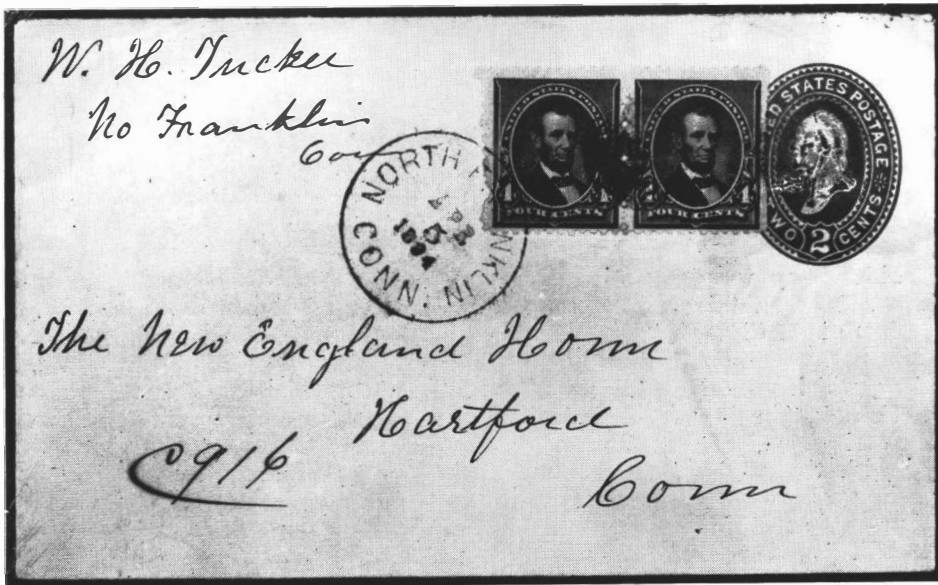 W. H. Tucker
No Franklin
Con
NORTH FRANKLIN CONN.
1894
4 4
FOUR CENTS
4 4
FOUR CENTS
UNITED STATES POSTAGE
TWO 2 CENTS
The New England Hom
Hartford
Conn
C916